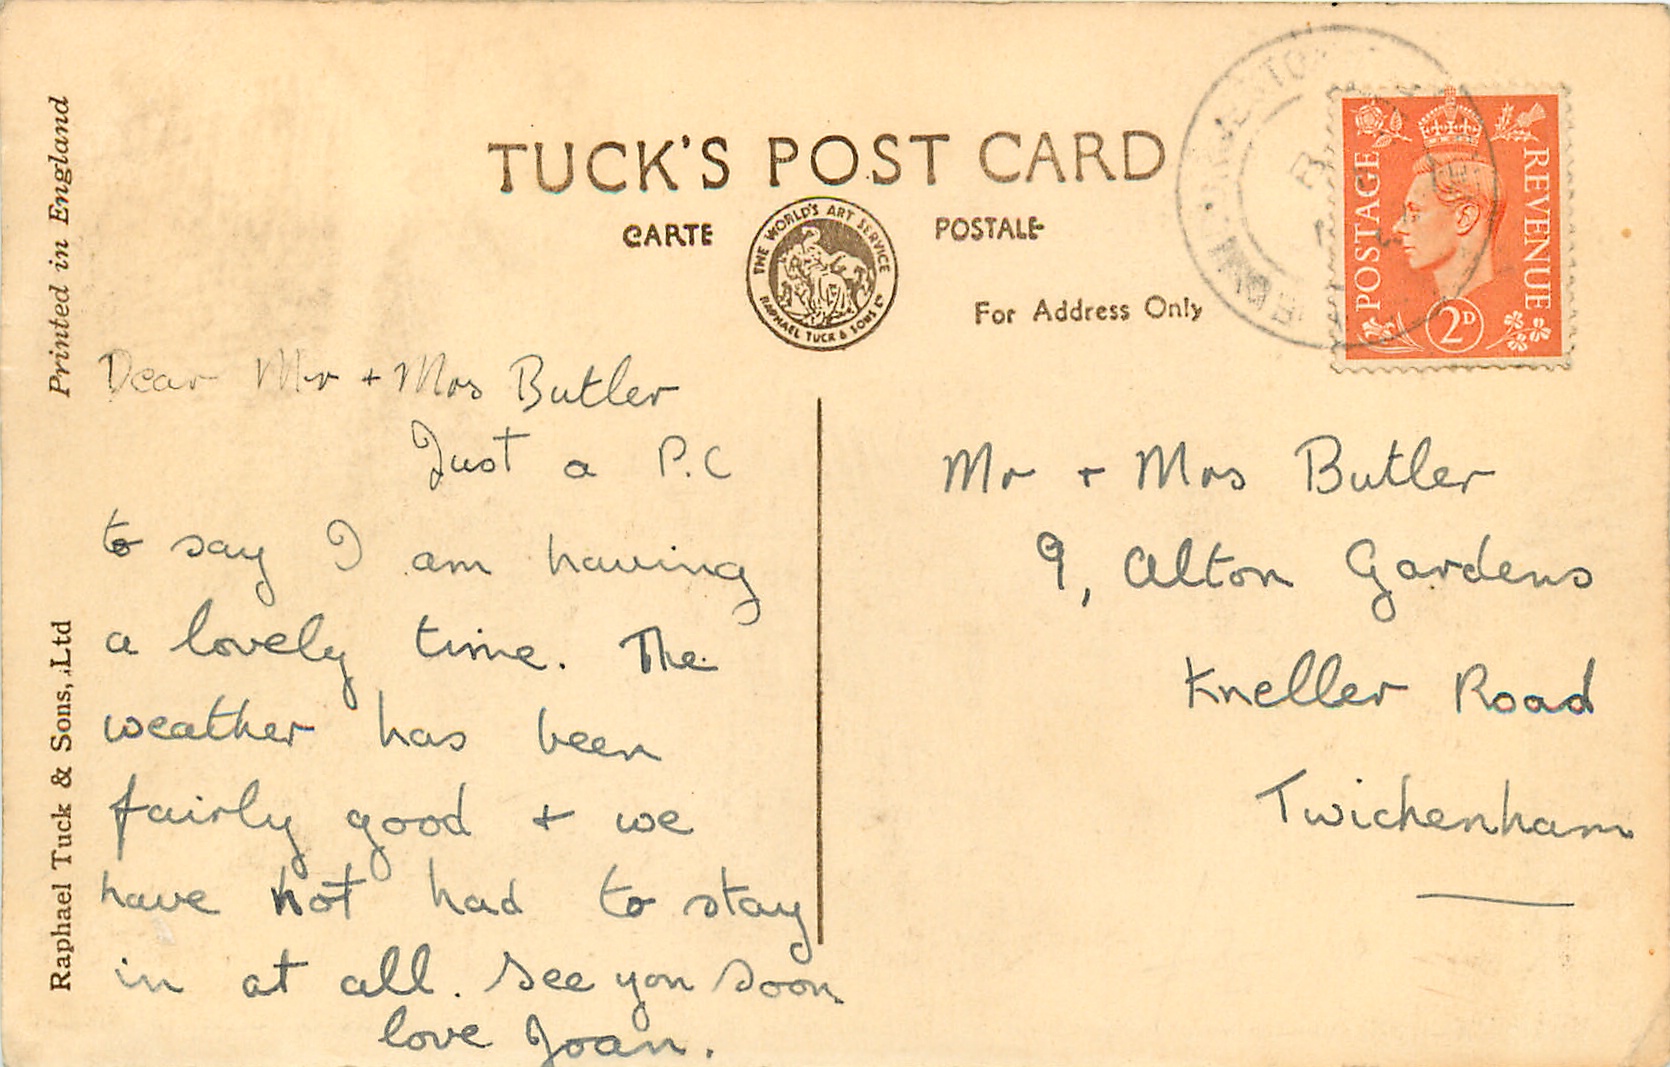 TUCK'S POST CARD
CARTE POSTALE
THE WORLD'S ART SERVICE
RAPHAEL TUCK & SONS LD
For Address Only
POSTAGE
REVENUE
2D
Printed in England
Raphael Tuck & Sons, Ltd
Dear Mr + Mrs Butler
Just a P.C
to say I am having
a lovely time. The
weather has been
fairly good + we
have not had to stay
in at all. See you soon
love Joan.
Mr + Mrs Butler
9, Alton Gardens
Kneller Road
Twickenham